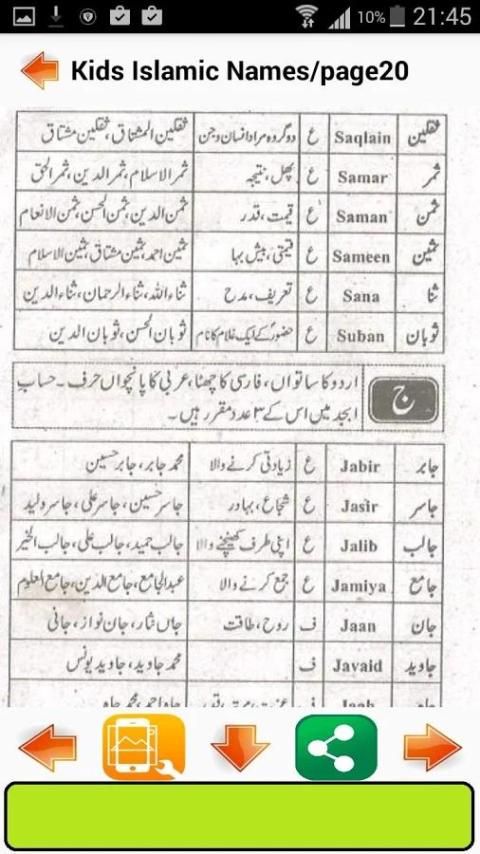 10% 21:45
Kids Islamic Names/page20
ثقلین Saqlain ع دو گروہ مراد انسان و جن ثقلین المشتاق، ثقلین مشتاق
ثمر Samar ع پھل، نتیجہ ثمر الاسلام، ثمر الدین، ثمر الحق
ثمن Saman ع قیمت، قدر ثمن الدین، ثمن الحسن، ثمن الانعام
ثمین Sameen ع قیمتی، بیش بہا ثمین احمد، ثمین مشتاق، ثمین الاسلام
ثنا Sana ع تعریف، مدح ثناء اللہ، ثناء الرحمان، ثناء الدین
ثوبان Suban ع حضورؐ کے ایک غلام کا نام ثوبان الحسن، ثوبان الدین
ج
اردو کا ساتواں، فارسی کا چھٹا، عربی کا پانچواں حرف۔ حساب
ابجد میں اس کے ۳ عدد مقرر ہیں۔
جابر Jabir ع زیادتی کرنے والا محمد جابر، جابر حسین
جاسر Jasir ع شجاع، بہادر جاسر حسین، جاسر علی، جاسر ولید
جالب Jalib ع اپنی طرف کھینچنے والا جالب حمید، جالب علی، جالب الخیر
جامع Jamiya ع جمع کرنے والا عبدالجامع، جامع الدین، جامع العلوم
جان Jaan ف روح، طاقت جاں نثار، جان نواز، جانی
جاوید Javaid ف محمد جاوید، جاوید یونس